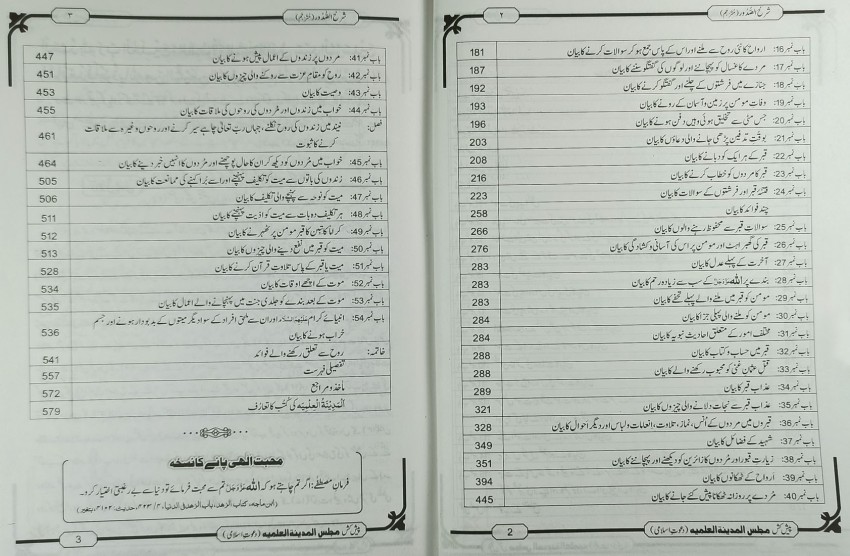 ۲ شرحُ الصُّدُور (مُترجَم)
باب نمبر16: ارواح کا نئی روح سے ملنے اور اس کے پاس جمع ہو کر سوالات کرنے کا بیان 181
باب نمبر17: مردے کا غسال کو پہچاننے اور لوگوں کی گفتگو سننے کا بیان 187
باب نمبر18: جنازے میں فرشتوں کے چلنے اور گفتگو کرنے کا بیان 192
باب نمبر19: وفات مومن پر زمین و آسمان کے رونے کا بیان 193
باب نمبر20: جس مٹی سے تخلیق ہوئی وہیں دفن ہونے کا بیان 196
باب نمبر21: بوقتِ تدفین پڑھی جانے والی دعاؤں کا بیان 203
باب نمبر22: قبر کے ہر ایک کو دبانے کا بیان 208
باب نمبر23: قبر کا مردوں کو خطاب کرنے کا بیان 216
باب نمبر24: فتنۂ قبر اور فرشتوں کے سوالات کا بیان 223
چند فوائد کا بیان 258
باب نمبر25: سوالاتِ قبر سے محفوظ رہنے والوں کا بیان 266
باب نمبر26: قبر کی گھبراہٹ اور مومن پر اس کی آسانی و کشادگی کا بیان 276
باب نمبر27: آخرت کے پہلے عدل کا بیان 283
باب نمبر28: بندے پر اللہ عَزَّوَجَلَّ کے سب سے زیادہ رحم کا بیان 283
باب نمبر29: مومن کو قبر میں ملنے والے پہلے تحفے کا بیان 283
باب نمبر30: مومن کو ملنے والی پہلی جزا کا بیان 284
باب نمبر31: مختلف امور کے متعلق احادیث نبویہ کا بیان 284
باب نمبر32: قبر میں حساب و کتاب کا بیان 288
باب نمبر33: قتلِ عثمان غنی کو محبوب رکھنے والے کا بیان 288
باب نمبر34: عذاب قبر کا بیان 289
باب نمبر35: عذاب قبر سے نجات دلانے والی چیزوں کا بیان 321
باب نمبر36: قبروں میں مردوں کے اُنس، نماز، تلاوت، انعامات و لباس اور دیگر احوال کا بیان 328
باب نمبر37: شہید کے فضائل کا بیان 349
باب نمبر38: زیارتِ قبور اور مُردوں کا زائرین کو دیکھنے اور پہچاننے کا بیان 351
باب نمبر39: اَرواح کے ٹھکانوں کا بیان 394
باب نمبر40: مُردے پر روزانہ ٹھکانا پیش کئے جانے کا بیان 445
پیش کش مجلس المدینۃ العلمیہ (دعوتِ اسلامی) 2
شرحُ الصُّدُور (مُترجَم) ۳
باب نمبر41: مردوں پر زندوں کے اعمال پیش ہونے کا بیان 447
باب نمبر42: روح کو مقامِ عزت سے روکنے والی چیزوں کا بیان 451
باب نمبر43: وصیت کا بیان 453
باب نمبر44: خواب میں زندوں اور مُردوں کی روحوں کی ملاقات کا بیان 455
فصل: نیند میں زندوں کی روح نکلنے، جہاں ربّ تعالیٰ چاہے سیر کرنے اور روحوں وغیرہ سے ملاقات
کرنے کا ثبوت 461
باب نمبر45: خواب میں مُردوں کو دیکھ کر ان کا حال پوچھنے اور مُردوں کا انہیں خبر دینے کا بیان 464
باب نمبر46: زندوں کی باتوں سے میت کو تکلیف پہنچنے اور اسے بُرا کہنے کی ممانعت کا بیان 505
باب نمبر47: میت کو نوحہ سے پہنچنے والی تکلیف کا بیان 506
باب نمبر48: ہر تکلیف دہ بات سے میت کو اذیت پہنچنے کا بیان 511
باب نمبر49: کراماً کاتبین کا قبرِ مومن پر ٹھہرنے کا بیان 512
باب نمبر50: میت کو قبر میں نفع دینے والی چیزوں کا بیان 513
باب نمبر51: میت یا قبر کے پاس تلاوتِ قرآن کرنے کا بیان 528
باب نمبر52: موت کے اچھے اوقات کا بیان 534
باب نمبر53: موت کے بعد بندے کو جلدی جنت میں پہنچانے والے اعمال کا بیان 535
باب نمبر54: انبیائے کرام اور ان سے ملحق افراد کے سوا دیگر میتوں کے بدبودار ہونے اور جسم
خراب ہونے کا بیان 536
خاتمہ: روح سے تعلق رکھنے والے فوائد 541
تفصیلی فہرست 557
ماٰخذ و مراجع 572
اَلْمَدِیْنَۃُ الْعِلْمِیَہ کی کُتُب کا تعارُف 579
محبتِ الٰہی پانے کا نسخہ
فرمانِ مصطفٰے: اگر تم چاہتے ہو کہ اللہ عَزَّوَجَلَّ تم سے محبت فرمائے تو دنیا سے بے رغبتی اختیار کرو۔
(ابن ماجہ، کتاب الزھد، باب الزھد فی الدنیا، ۴/ ۴۲۳، حدیث: ۴۱۰۲، بتغیر)
پیش کش مجلس المدینۃ العلمیہ (دعوتِ اسلامی) 3